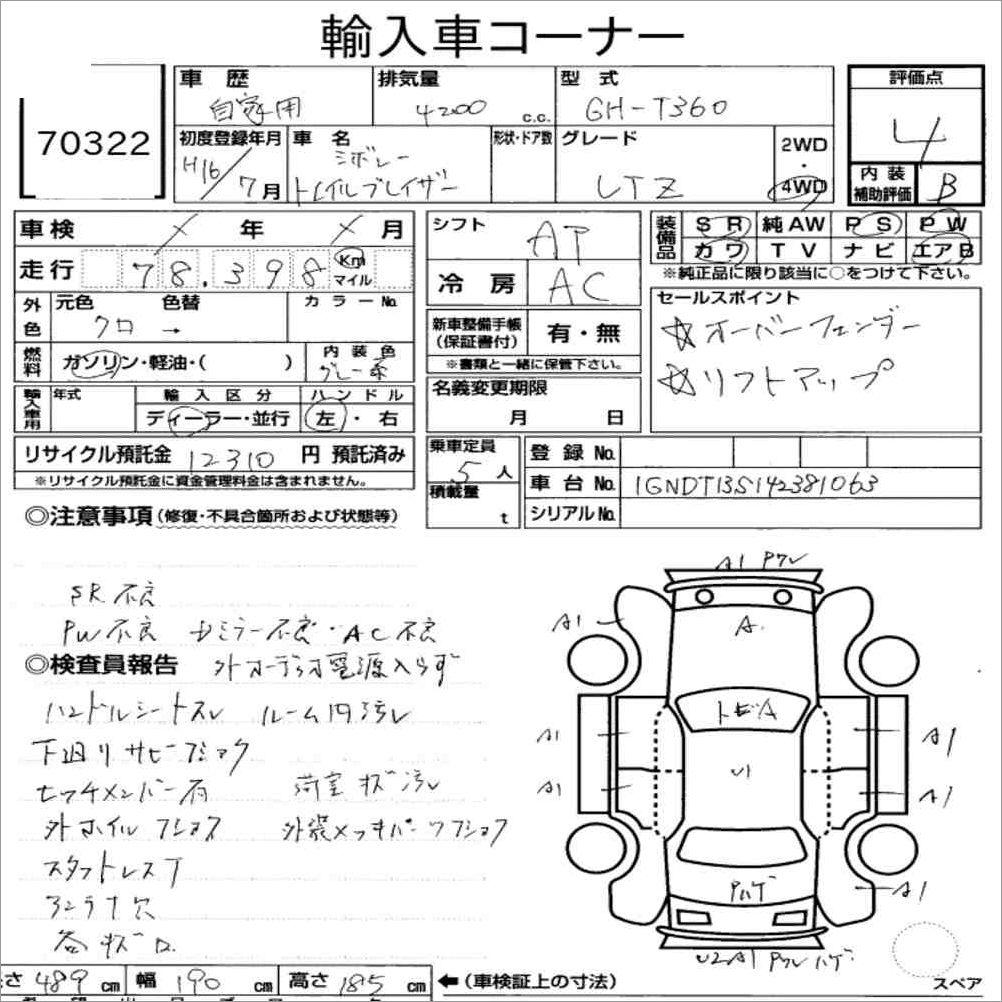 輸入車コーナー
70322
車 歴 自家用
排気量 4200 c.c.
型 式 GH-T360
評価点 4
初度登録年月 H16/7月
車 名 シボレー トレイルブレイザー
形状・ドア数
グレード LTZ
2WD・4WD
内装補助評価 B
車検 × 年 × 月
シフト AT
装備品 SR 純AW PS PW
カワ TV ナビ エアB
走行 78,398 Km マイル
冷 房 AC
※純正品に限り該当に○をつけて下さい。
外色 元色 色替 カラーNo.
クロ →
新車整備手帳(保証書付) 有・無
※書類と一緒に保管下さい。
セールスポイント
☆オーバーフェンダー
☆リフトアップ
燃料 ガソリン・軽油・( )
内装色 グレー系
名義変更期限
月 日
輸入車用 年式 輸入区分 ハンドル
ディーラー・並行 左・右
リサイクル預託金 12310 円 預託済み
※リサイクル預託金に資金管理料金は含まれません。
乗車定員 5人
積載量 t
登 録 No.
車 台 No. 1GNDT13S142381063
シリアルNo.
◎注意事項(修復・不具合箇所および状態等)
SR不良
PW不良 ドミラー不良・AC不良
◎検査員報告 外オーディオ電源入らず
ハンドルシートスレ ルーム内汚レ
下廻リサビ・フショク
ヒッチメンバー有 荷室キズ汚レ
外ホイルフショク 外装メッキパーツフショク
スタットレスT
アンテナ欠
各キズロ
A1 Pワレ
A1
A
A1 トビA A1
A1 U1 A1
Pハゲ
A1
U2A1 Pワレハゲ
スペア
さ 489 cm 幅 190 cm 高さ 185 cm ←(車検証上の寸法)